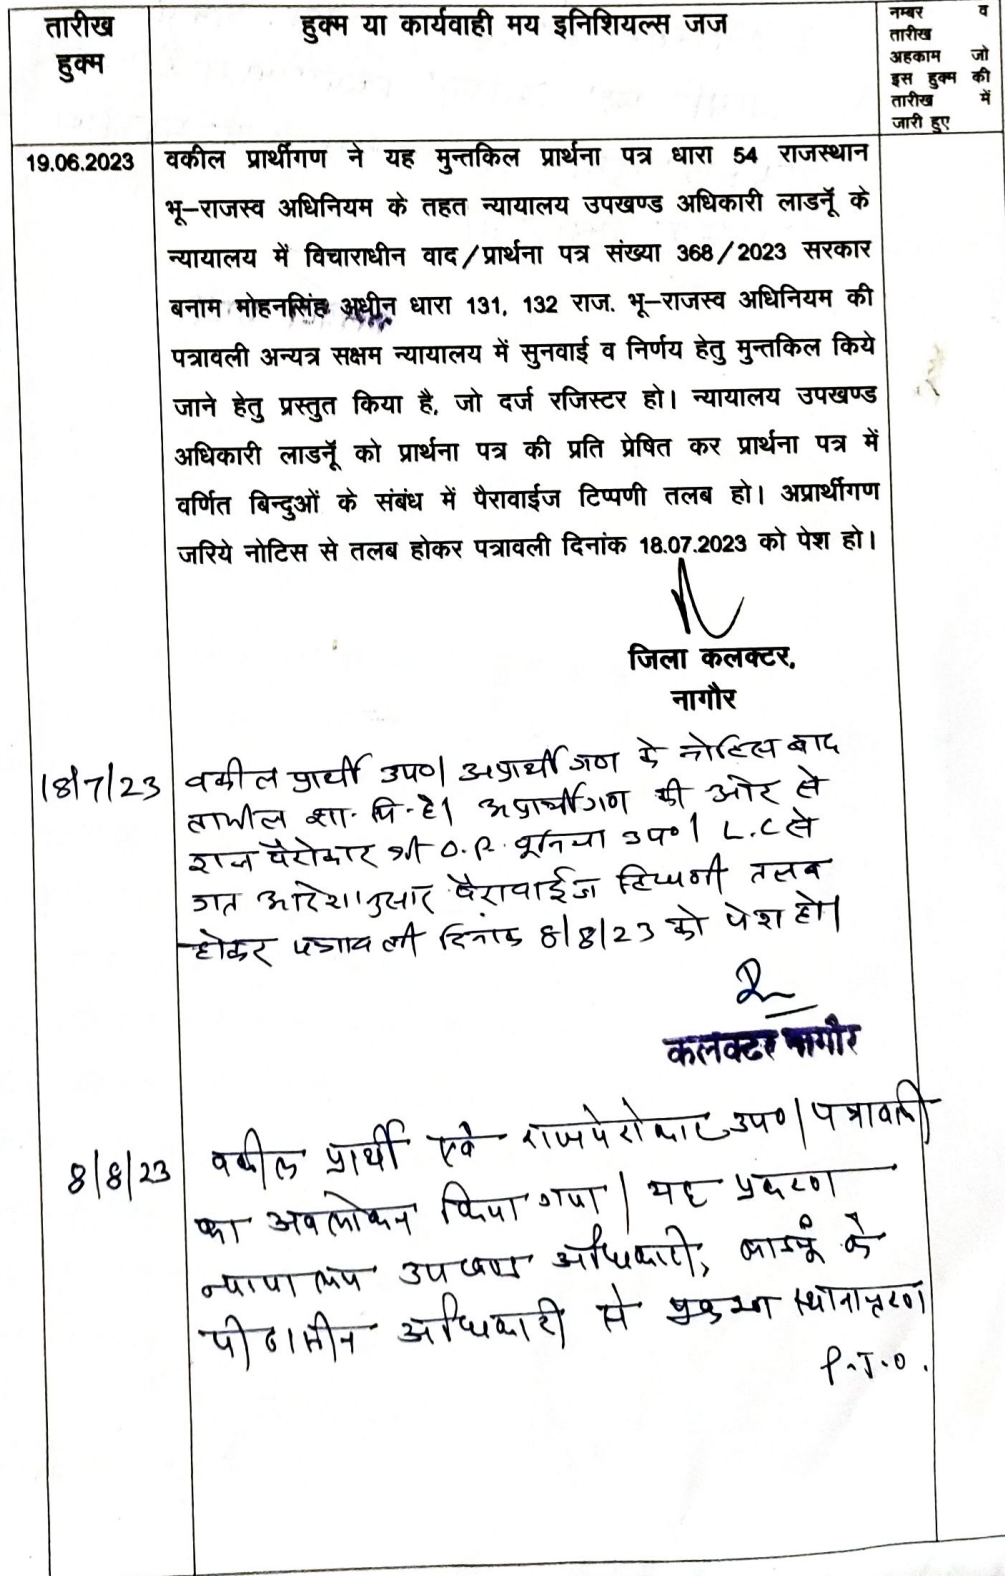 तारीख
हुक्म
हुक्म या कार्यवाही मय इनिशियल्स जज
नम्बर व
तारीख
अहकाम जो
इस हुक्म की
तारीख में
जारी हुए
19.06.2023
वकील प्रार्थीगण ने यह मुन्तकिल प्रार्थना पत्र धारा 54 राजस्थान
भू–राजस्व अधिनियम के तहत न्यायालय उपखण्ड अधिकारी लाडनूँ के
न्यायालय में विचाराधीन वाद/प्रार्थना पत्र संख्या 368/2023 सरकार
बनाम मोहनसिंह अधीन धारा 131, 132 राज. भू–राजस्व अधिनियम की
पत्रावली अन्यत्र सक्षम न्यायालय में सुनवाई व निर्णय हेतु मुन्तकिल किये
जाने हेतु प्रस्तुत किया है, जो दर्ज रजिस्टर हो। न्यायालय उपखण्ड
अधिकारी लाडनूँ को प्रार्थना पत्र की प्रति प्रेषित कर प्रार्थना पत्र में
वर्णित बिन्दुओं के संबंध में पैरावाईज टिप्पणी तलब हो। अप्रार्थीगण
जरिये नोटिस से तलब होकर पत्रावली दिनांक 18.07.2023 को पेश हो।
जिला कलक्टर,
नागौर
18/7/23
वकील प्रार्थी उप०। अप्रार्थीगण के नोटिस बाद
तामील शा. मि. है। अप्रार्थीगण की ओर से
राज पैरोकार श्री O.P. पूनिया उप०। L.C से
गत आदेशानुसार पैरावाईज टिप्पणी तलब
होकर पत्रावली दिनांक 8/8/23 को पेश हो।
कलक्टर नागौर
8/8/23
वकील प्रार्थी एवं राजपेरोकार उप०। पत्रावली
का अवलोकन किया गया। यह प्रकरण
न्यायालय उपखण्ड अधिकारी, लाडनूं के
पीठासीन अधिकारी से प्रकरण स्थानान्तरण
P.T.O.